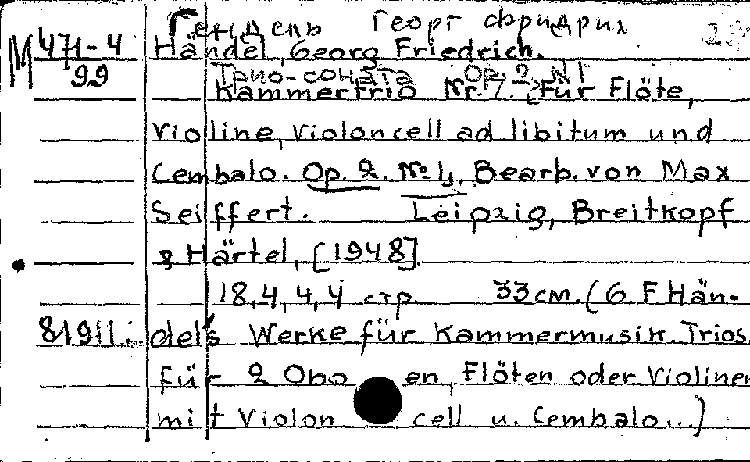 Гендель Георг Фридрих
М 471-4 Händel, Georg Friedrich.
99 Трио-соната Op. 2 N1
Kammertrio Nr. 7. [Für Flöte,
Violine, Violoncell ad libitum und
Cembalo. Op. 2. №1, Bearb. von Max
Seiffert. Leipzig, Breitkopf
& Härtel, [1948].
18, 4, 4, 4 стр 33 см. (G F Hän-
81911. del's Werke für Kammermusik. Trios.
Für 2 Oboen, Flöten oder Violinen
mit Violoncell u. Cembalo...)